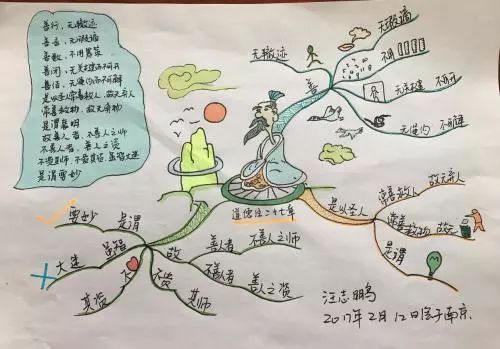 善行，无辙迹
善言，无瑕谪
善数，不用筹策
善闭，无关楗而不可开
善结，无绳约而不可解
是以圣人常善救人，故无弃人
常善救物，故无弃物
是谓袭明
故善人者，不善人之师
不善人者，善人之资
不贵其师，不爱其资，虽智大迷
是谓要妙
无辙迹
无瑕谪
不用
善
无关楗
不可开
无绳约
不可解
道德经二十七章
是以圣人
常善救人
故无弃人
常善救物
故无
是谓
要妙
是谓
大迷
虽智
故
善者
不善人之师
不善者
善人之资
不
不贵
其资
其师
汪志鹏
2017年2月12日绘于南京